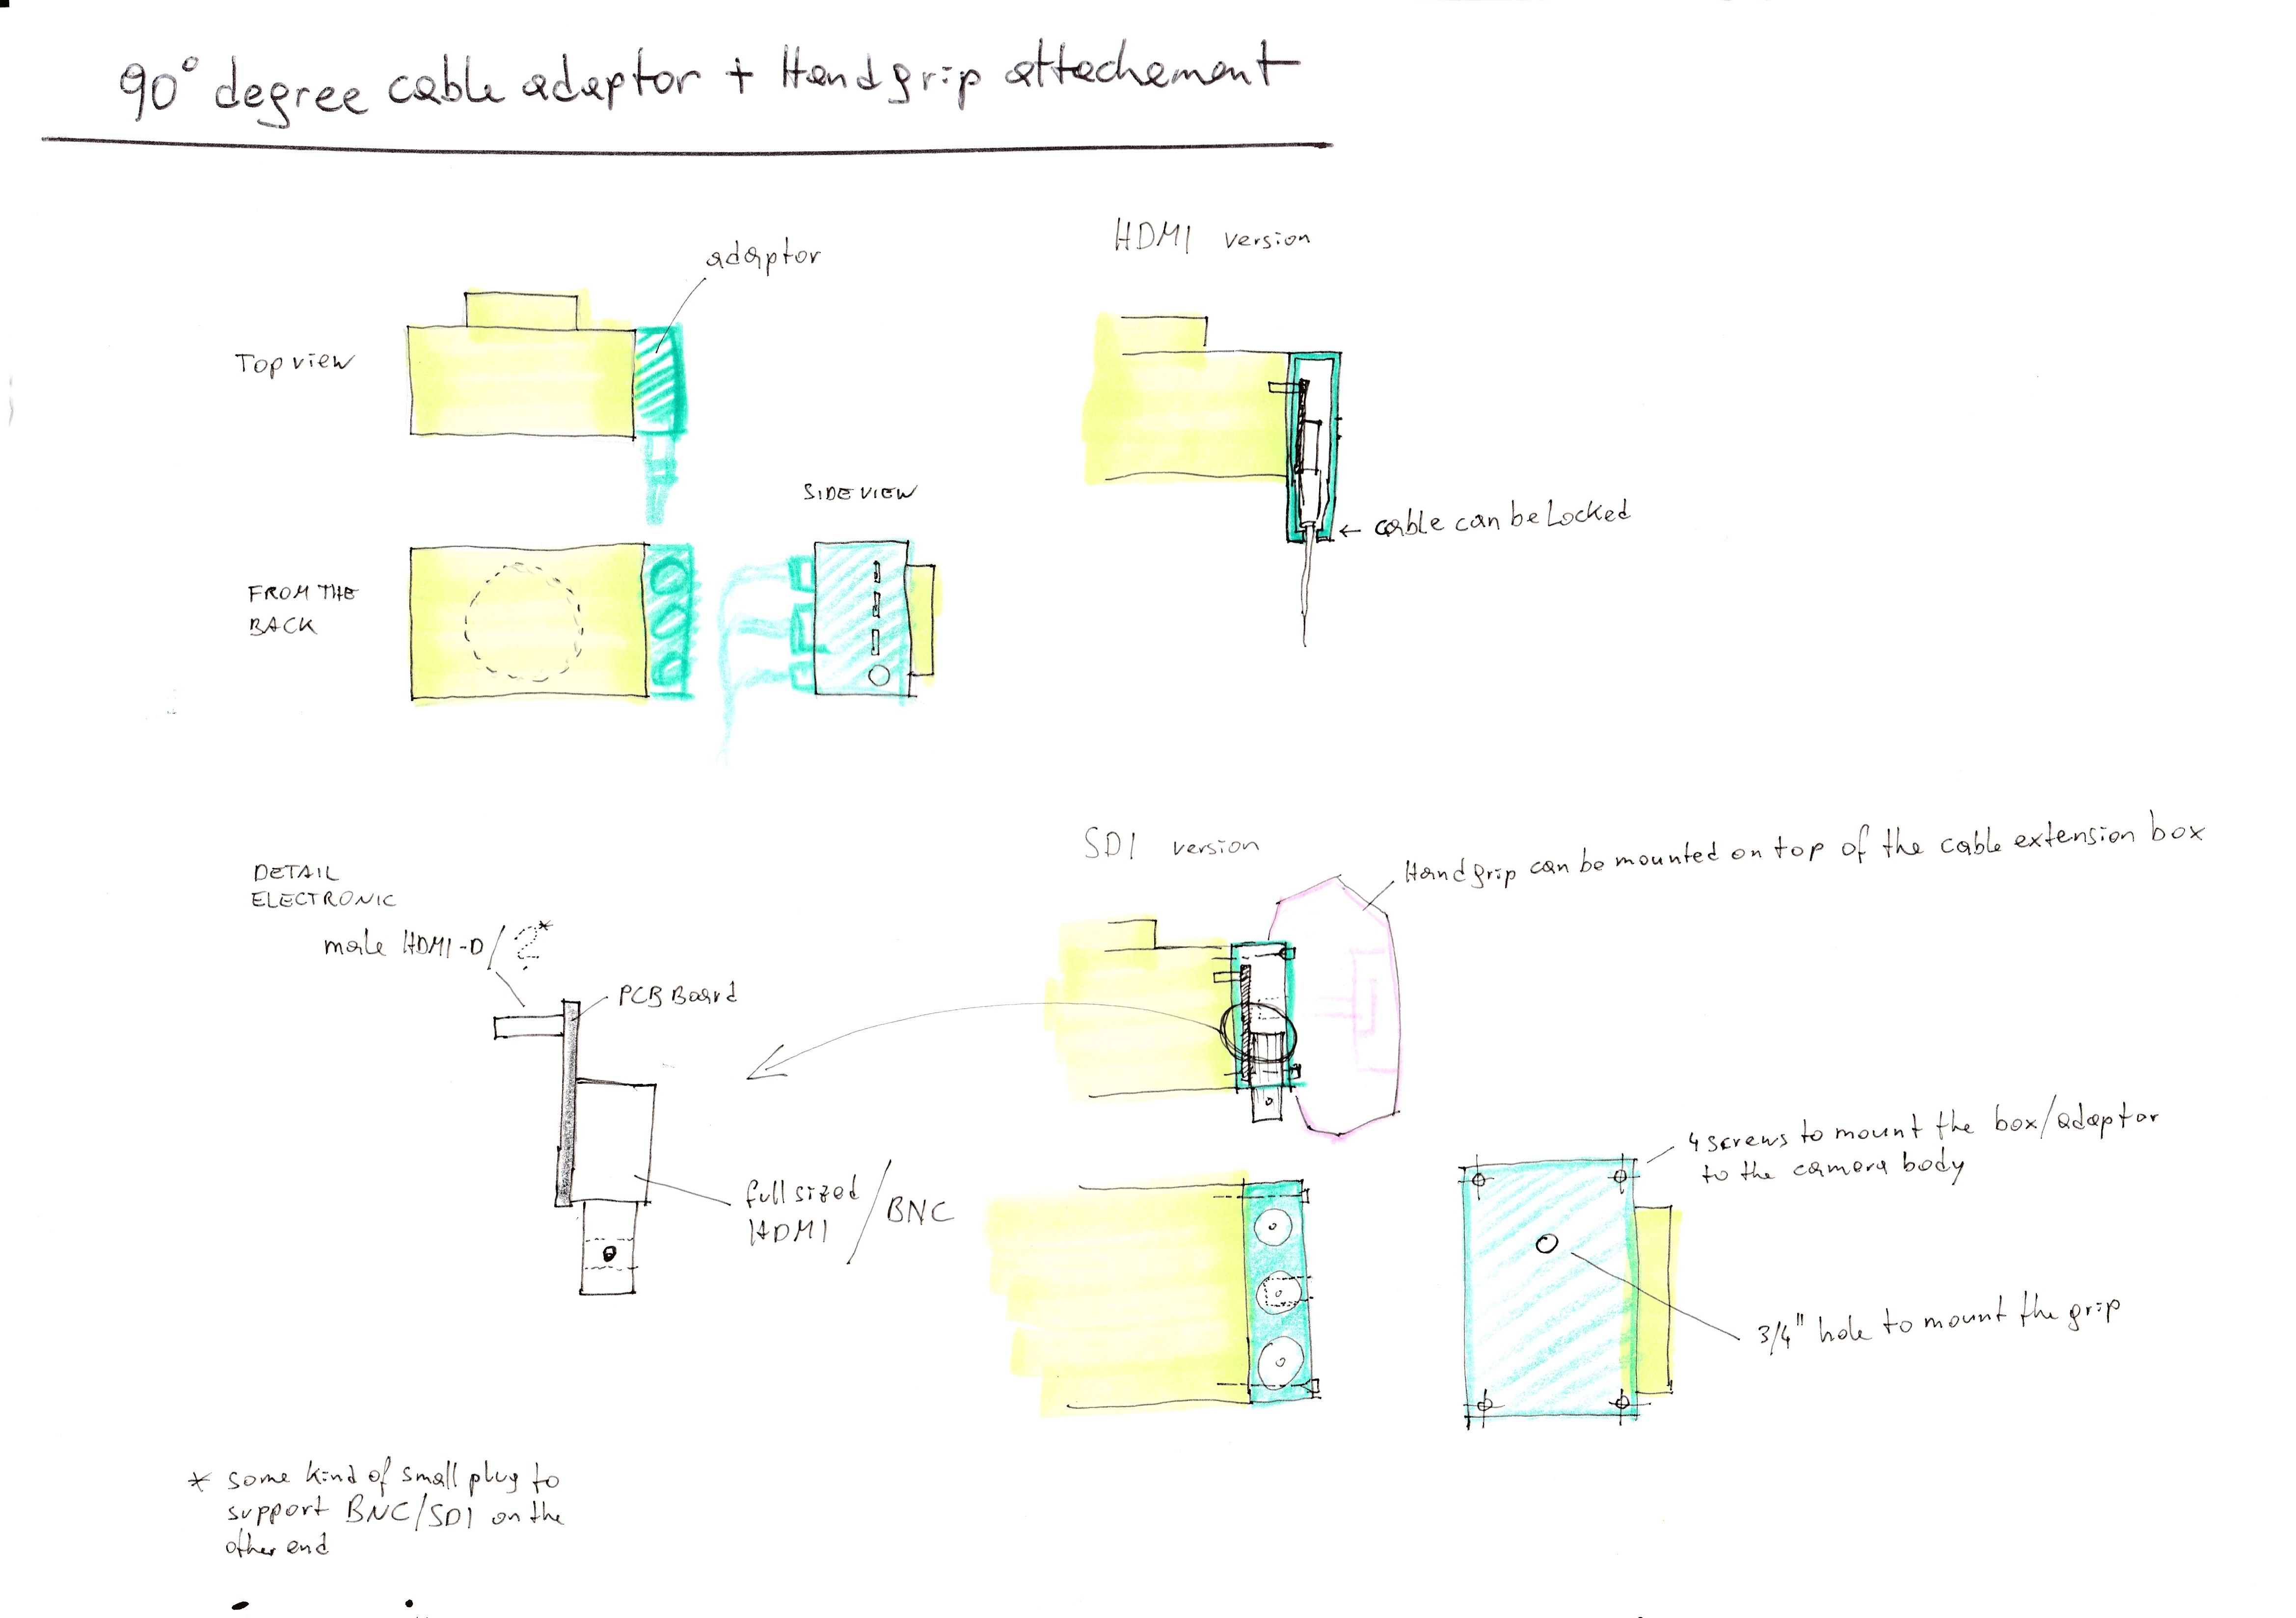 90° degree cable adaptor + Handgrip attachement
HDMI version
adaptor
Top view
SIDE VIEW
← cable can be Locked
FROM THE
BACK
SDI version
Handgrip can be mounted on top of the cable extension box
DETAIL
ELECTRONIC
male HDMI-D/?*
PCB Board
4 screws to mount the box/adaptor
to the camera body
full sized
HDMI / BNC
3/4" hole to mount the grip
* some kind of small plug to
support BNC/SDI on the
other end